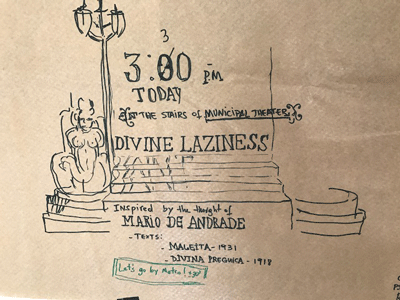 3
3:00 P.M
TODAY
AT THE STAIRS OF MUNICIPAL THEATER
DIVINE LAZINESS
Inspired by the thought of
MARIO DE ANDRADE
- TEXTS:
- MALEITA - 1931
- DIVINA PREGUIÇA - 1918
Let's go by Metro!